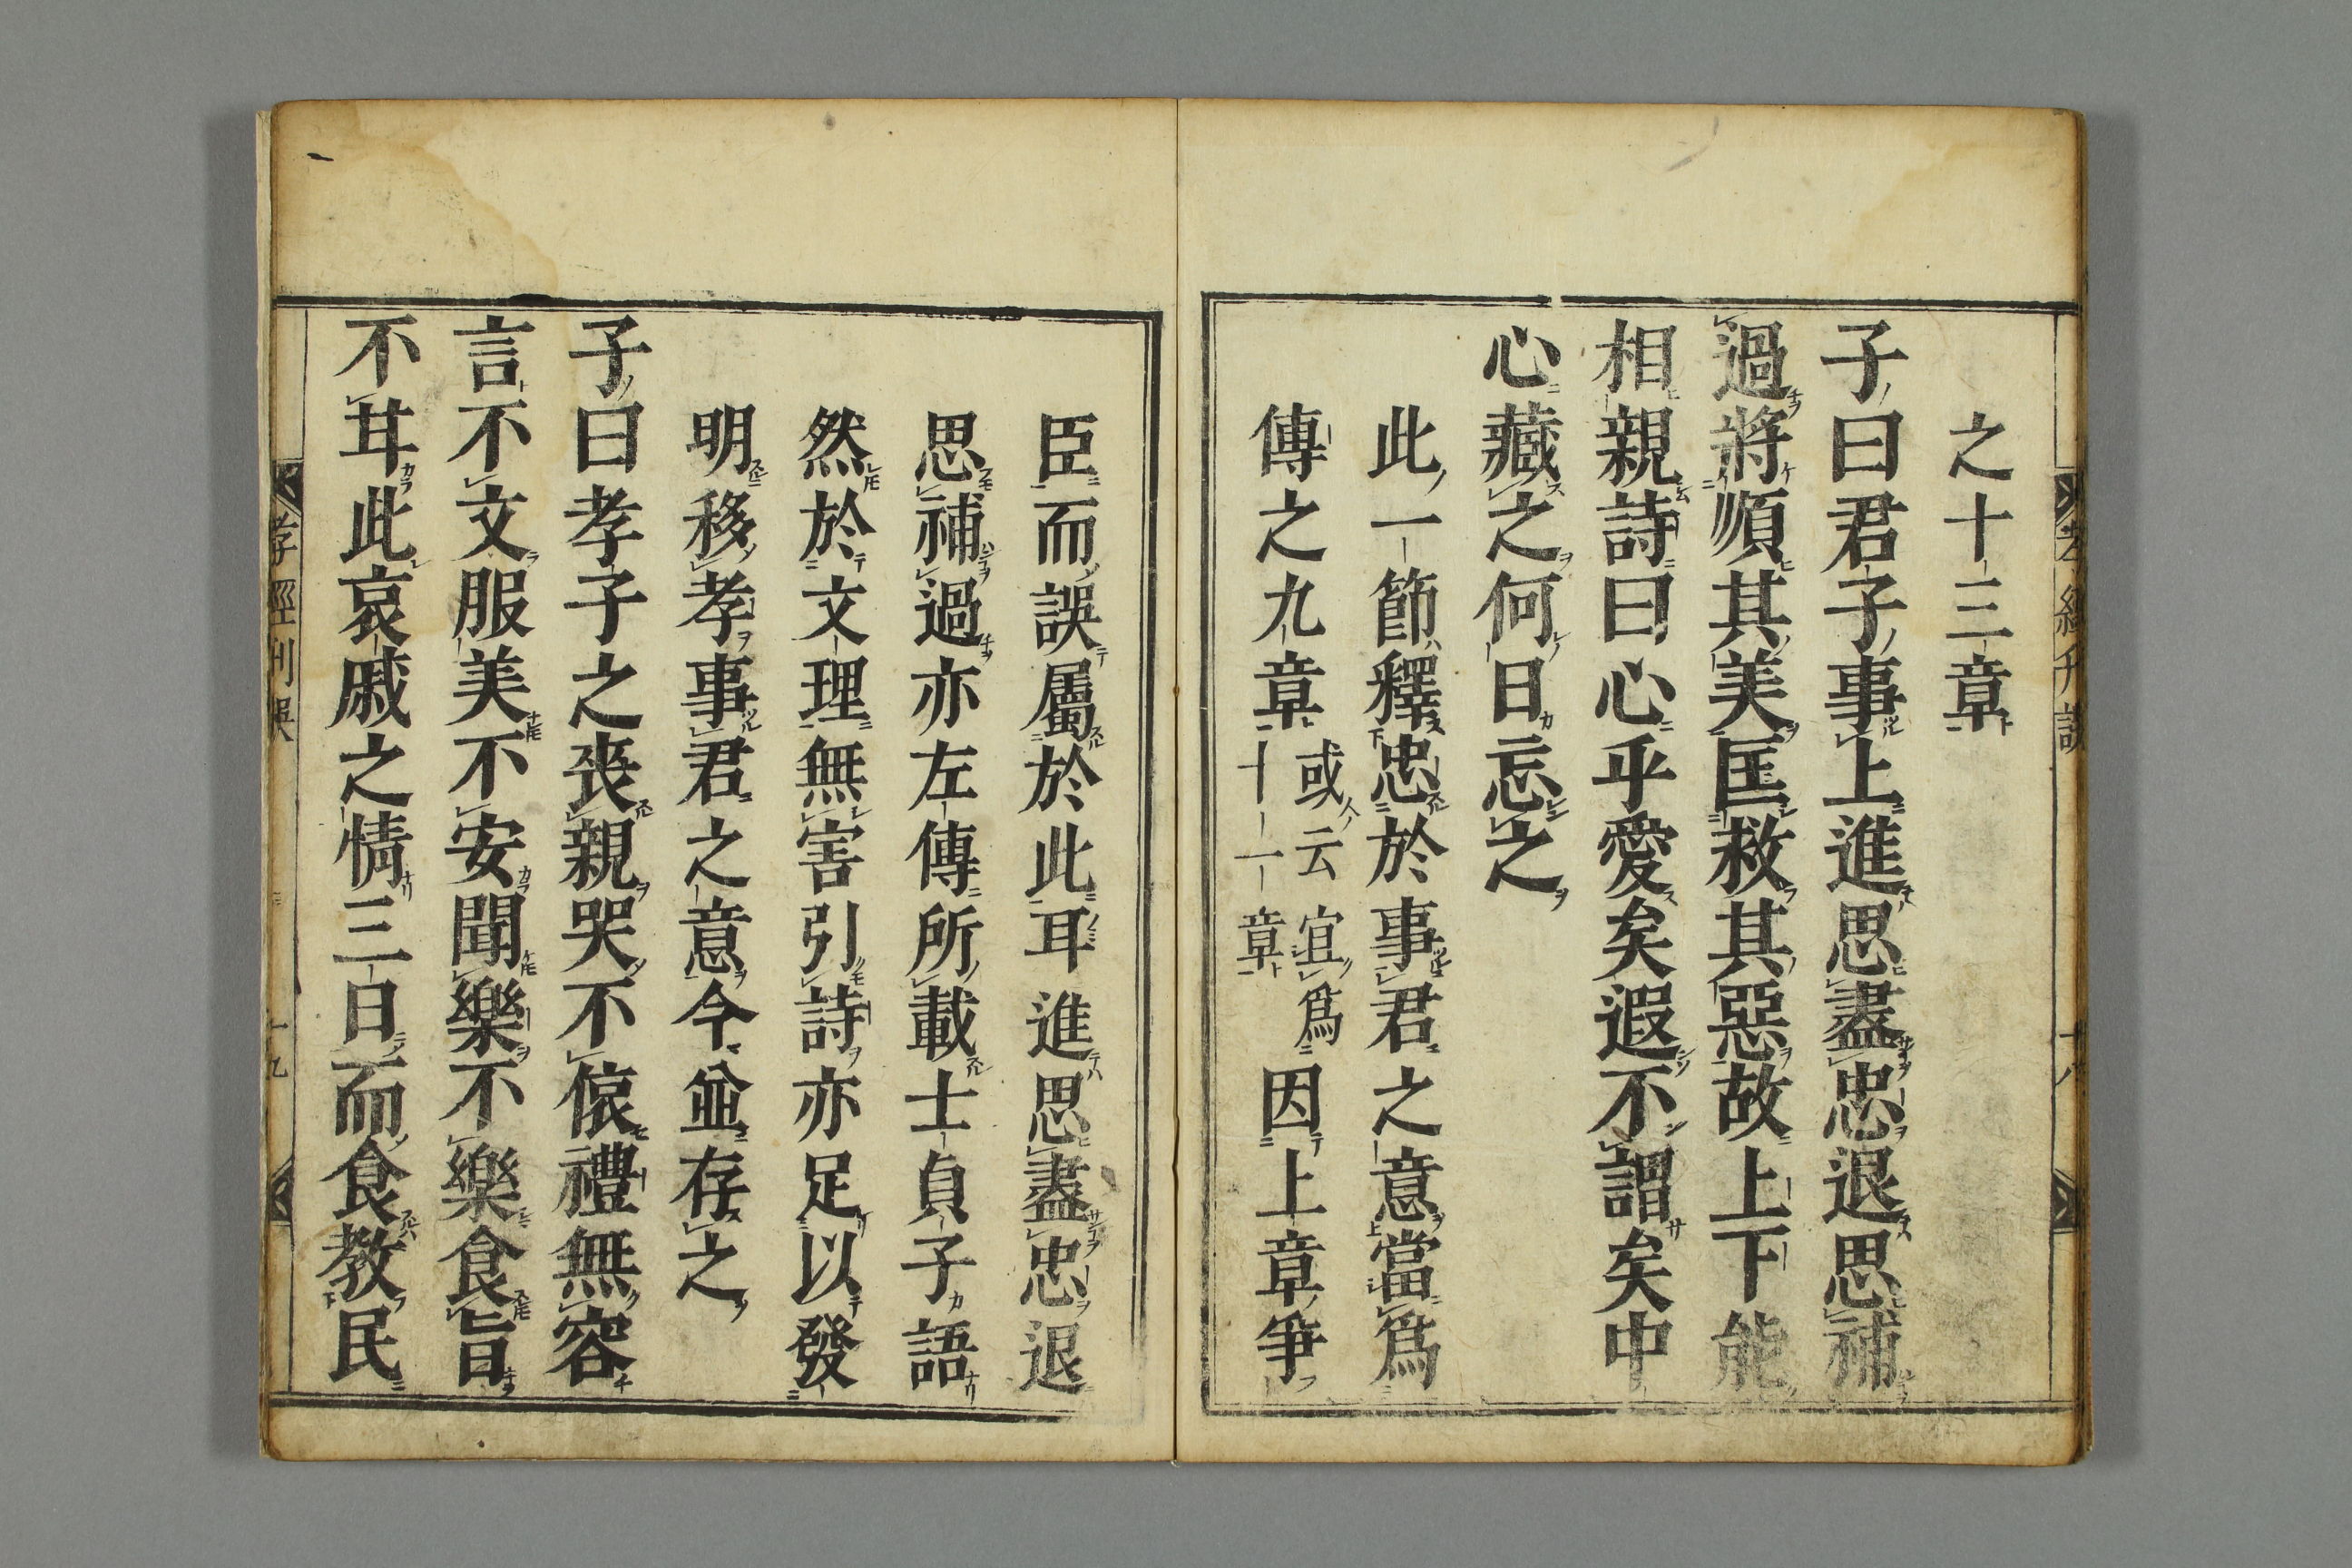 之十三章
子曰君子事上進思盡忠退思補
過將順其美匡救其惡故上下能
相親詩曰心乎愛矣遐不謂矣中
心藏之何日忘之
此一節釋忠於事君之意當爲
傳之九章或云宜爲十一章因上章爭
臣而誤屬於此耳進思盡忠退
思補過亦左傳所載士貞子語
然於文理無害引詩亦足以發
明移孝事君之意今並存之
子曰孝子之喪親哭不偯禮無容
言不文服美不安聞樂不樂食旨
不甘此哀戚之情三日而食教民
孝經刊誤
十九